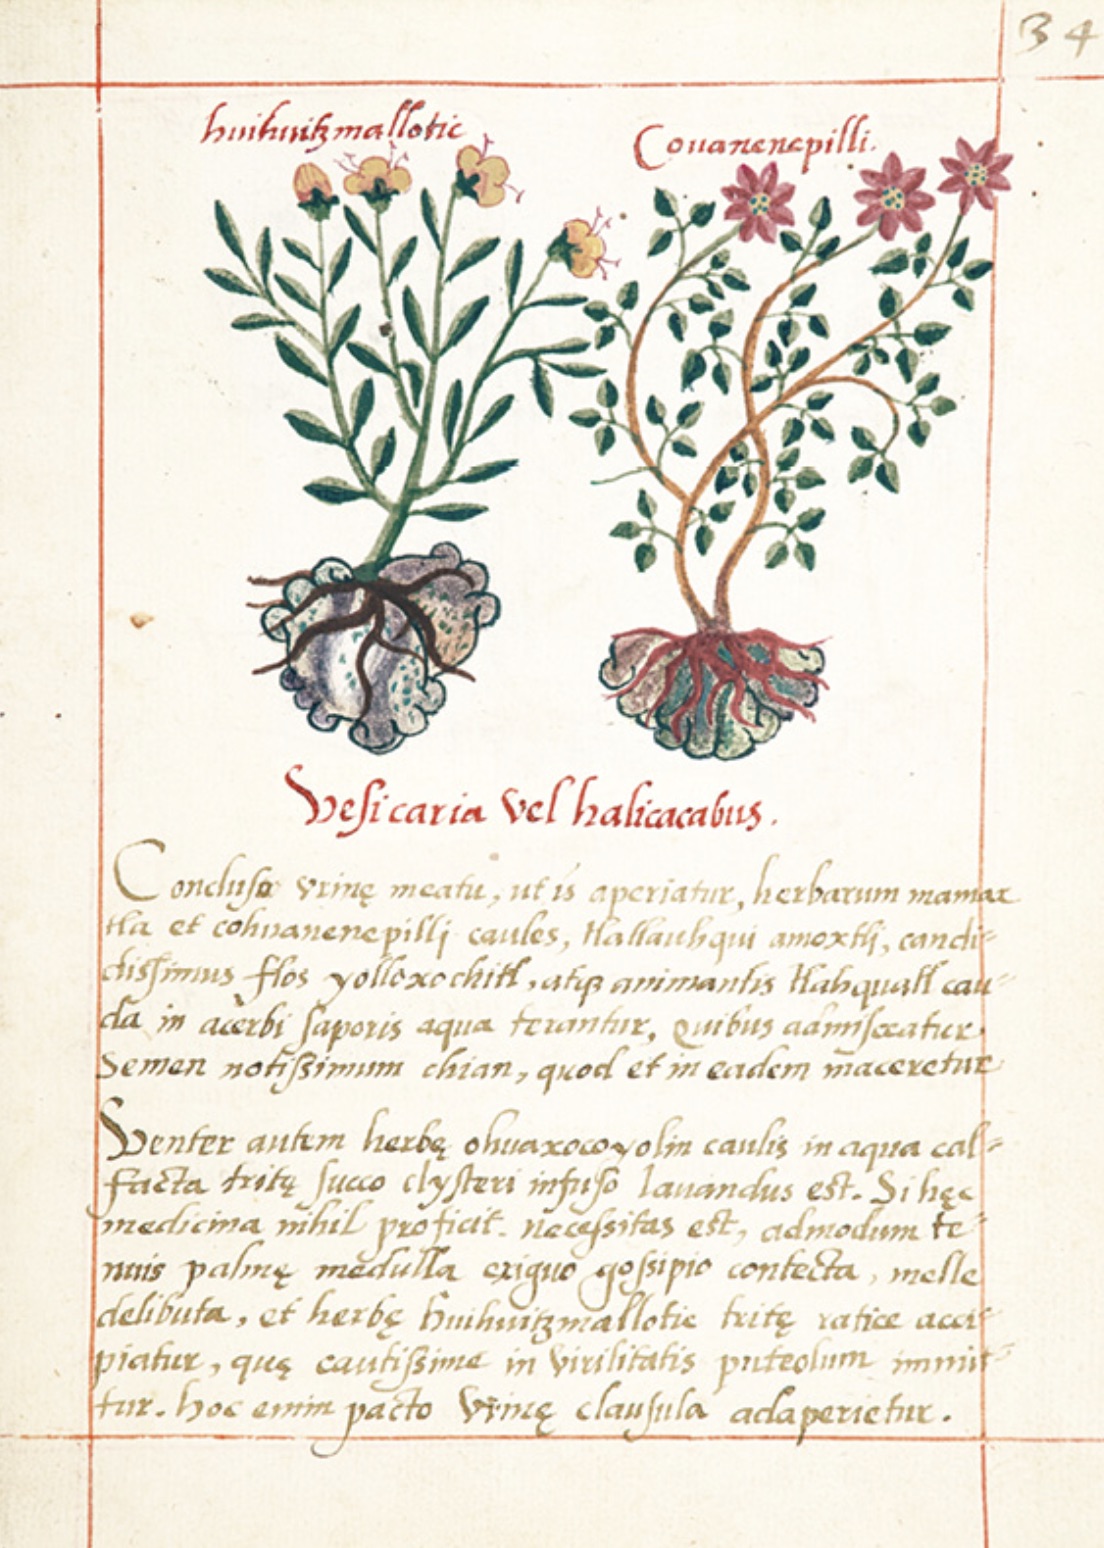 34
huihuitzmallotic
Couanenepilli.
Vesicaria vel halicacabus.
Concluso vrinę meatu, ut is aperiatur, herbarum mamax
tla et cohuanenepilli caules, tlatlauhqui amoxtli, candi=
dissimus flos yolloxochitl, atqȝ animantis tlahquatl cau=
da in acerbi saporis aqua terantur, Quibus admisceatur
Semen notissimum chian, quod et in eadem maceretur
Venter autem herbę ohuaxocoyolin caulis in aqua cal=
facta tritę succo clysteri infuso lauandus est. Si hęc
medicina nihil proficit. necessitas est, admodum te=
nuis palmę medulla exiguo gossipio contecta, melle
delibuta, et herbę huihuitzmallotic tritę ratice acci=
piatur, quę cautissime in virilitatis puteolum immit=
tur. hoc enim pacto vrinę clausula adaperietur.